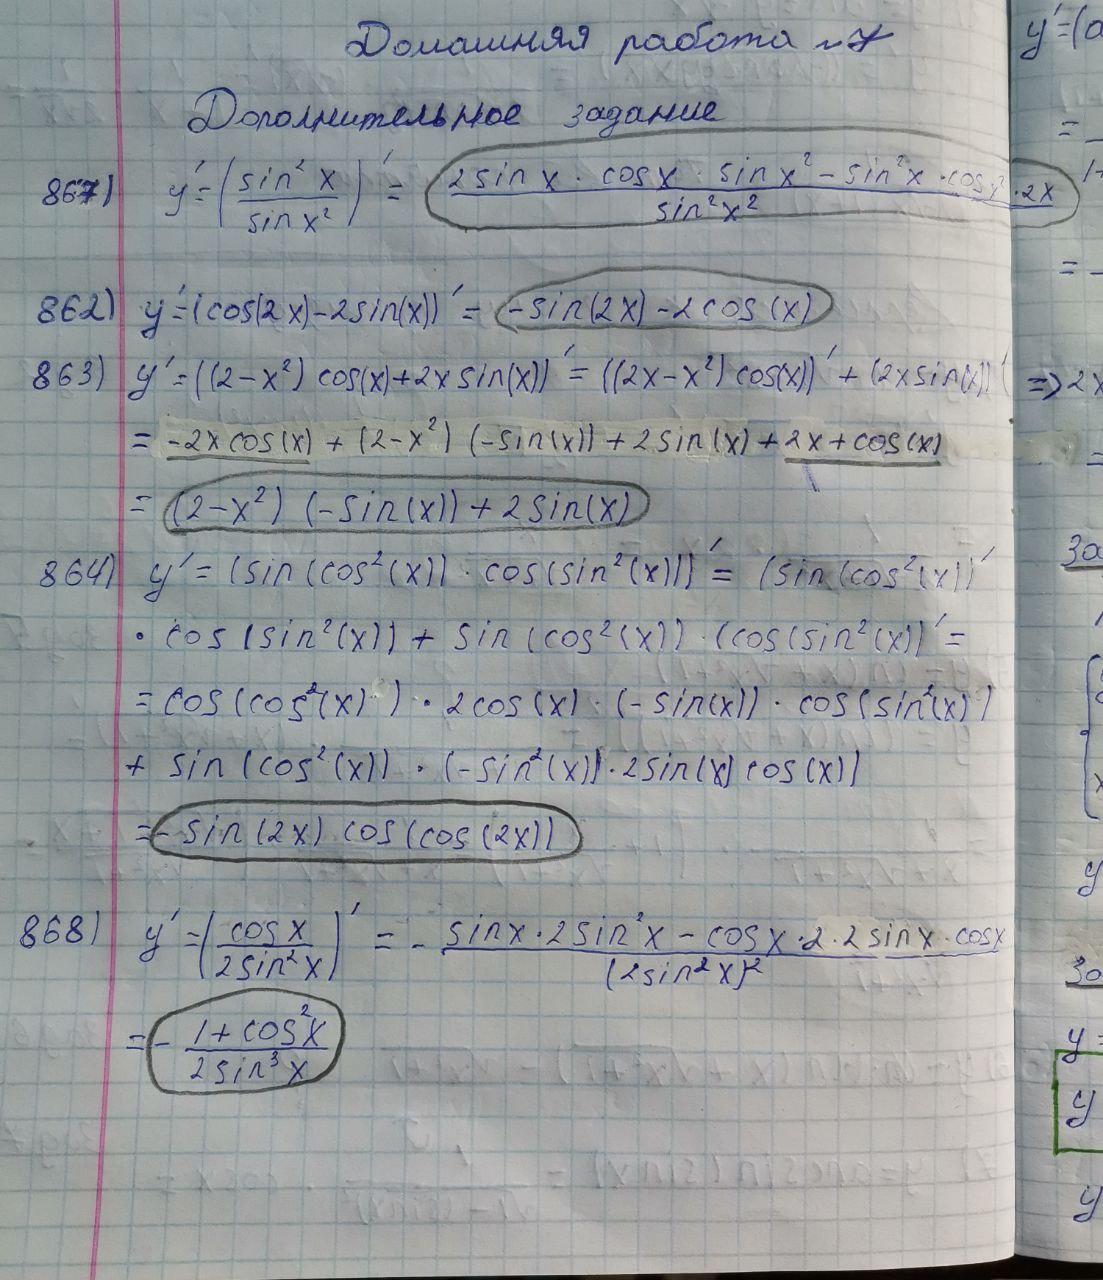 Домашняя работа №7
Дополнительное задание
867) y' = (sin² x / sin x²)' = (2 sin x · cos x · sin x² – sin² x · cos x² · 2x) / sin² x²
862) y' = (cos(2x) – 2sin(x))' = –sin(2x) – 2cos(x)
863) y' = ((2–x²) cos(x) + 2x sin(x))' = ((2x–x²) cos(x))' + (2x sin(x))' => 2x
= –2x cos(x) + (2–x²) (–sin(x)) + 2 sin(x) + 2x + cos(x)
= (2–x²) (–sin(x)) + 2 sin(x)
864) y' = (sin(cos²(x)) · cos(sin²(x)))' = (sin(cos²(x))'
· cos(sin²(x)) + sin(cos²(x)) · (cos(sin²(x))' =
= cos(cos²(x)) · 2cos(x) · (–sin(x)) · cos(sin²(x))
+ sin(cos²(x)) · (–sin²(x)) · 2sin(x) cos(x))
= –sin(2x) cos(cos(2x))
868) y' = (cos x / 2sin² x)' = – (sin x · 2 sin² x – cos x · 2 · 2 sin x · cos x) / (2sin² x)²
= – (1 + cos² x) / (2 sin³ x)
y' = (
=
=
=
y
y =
y
y